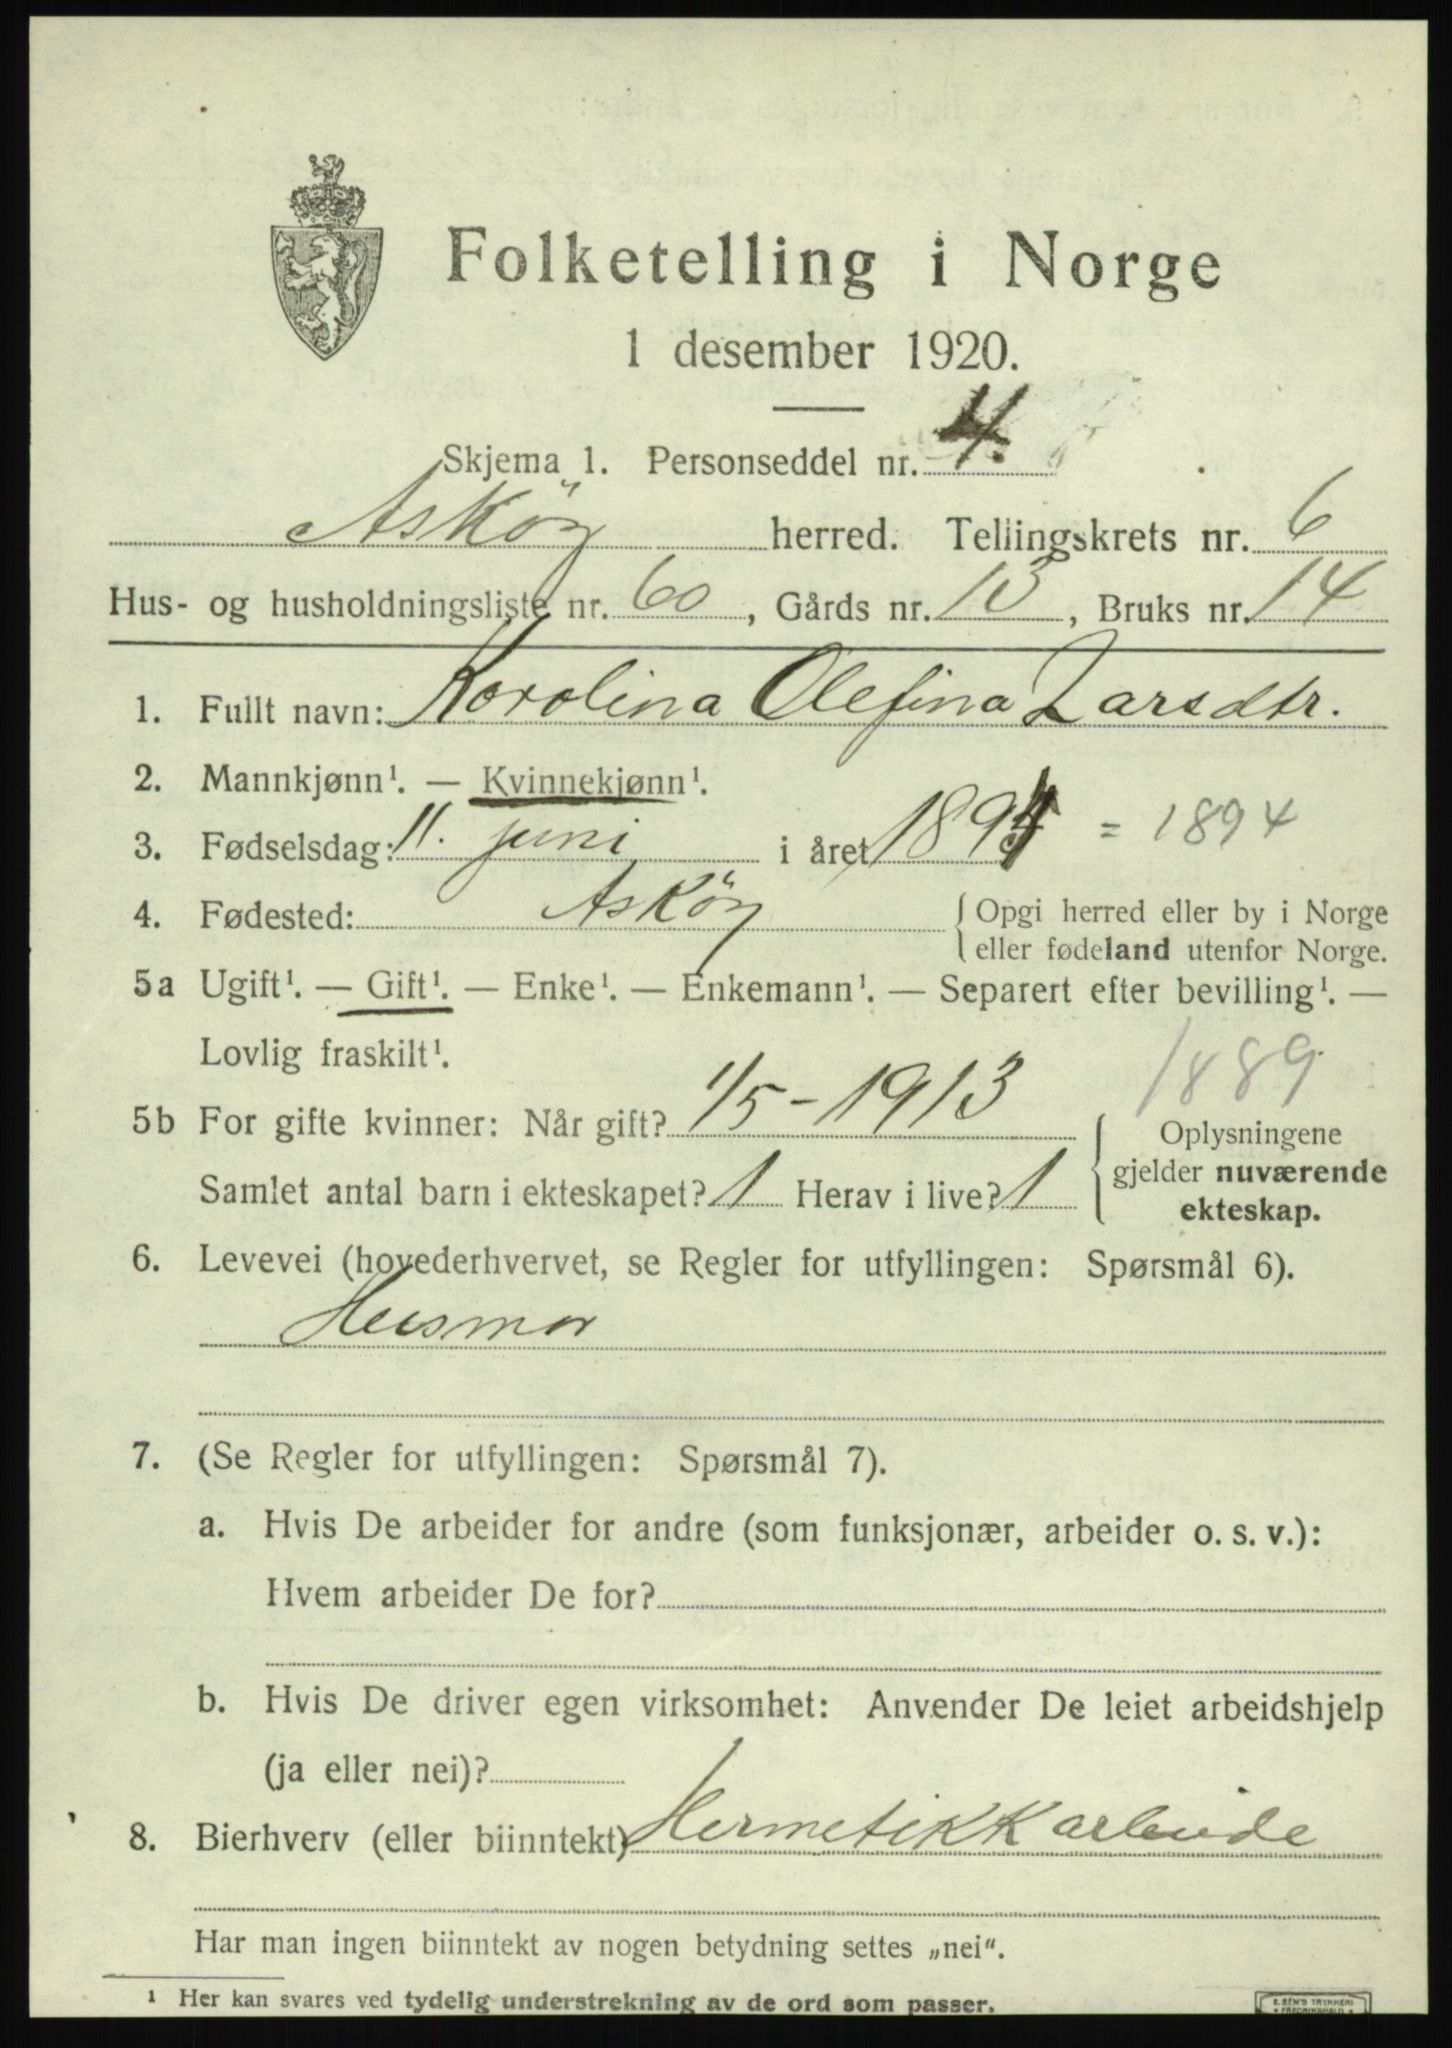 Folketelling i Norge
1 desember 1920.
Skjema 1. Personseddel nr. 4.
Asköy herred. Tellingskrets nr. 6
Hus- og husholdningsliste nr. 60, Gårds nr. 13, Bruks nr. 14
1. Fullt navn: Karolina Olefina Larsdtr.
2. Mannkjønn¹. — Kvinnekjønn¹.
3. Fødselsdag: 11. juni i året 1894 = 1894
4. Fødested: Asköy {Opgi herred eller by i Norge
eller fødeland utenfor Norge.
5a Ugift¹. — Gift¹. — Enke¹. — Enkemann¹. — Separert efter bevilling¹. —
Lovlig fraskilt¹.
1889
5b For gifte kvinner: Når gift? 1/5-1913 {Oplysningene
gjelder nuværende
ekteskap.
Samlet antal barn i ekteskapet? 1 Herav i live? 1
6. Levevei (hovederhvervet, se Regler for utfyllingen: Spørsmål 6).
Husmor
7. (Se Regler for utfyllingen: Spørsmål 7).
a. Hvis De arbeider for andre (som funksjonær, arbeider o. s. v.):
Hvem arbeider De for?
b. Hvis De driver egen virksomhet: Anvender De leiet arbeidshjelp
(ja eller nei)?
8. Bierhverv (eller biinntekt) Hermetikkarbeide
Har man ingen biinntekt av nogen betydning settes „nei“.
¹ Her kan svares ved tydelig understrekning av de ord som passer.
E. SEM'S TRYKKERI
FREDRIKSHALD